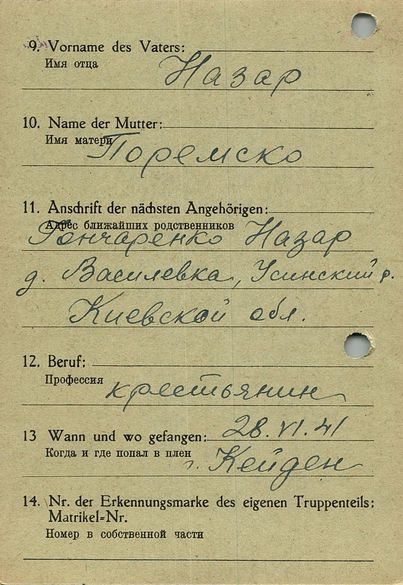 9. Vorname des Vaters:
Имя отца
Назар
10. Name der Mutter:
Имя матери
Поремско
11. Anschrift der nächsten Angehörigen:
Адрес ближайших родственников
Гончаренко Назар
д. Василевка, Усинский р.
Киевской обл.
12. Beruf:
Профессия
крестьянин
13 Wann und wo gefangen: 28.VI.41
Когда и где попал в плен
г. Кейден
14. Nr. der Erkennungsmarke des eigenen Truppenteils:
Matrikel-Nr.
Номер в собственной части